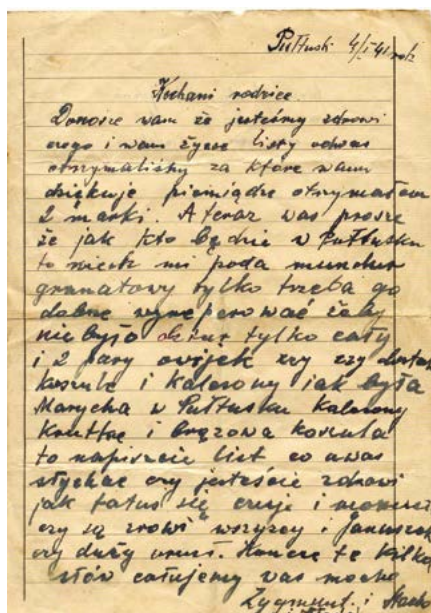 Pułtusk 4/I 41 rok
Kochani rodzice
Donosze wam że jesteśmy zdrowi
czego i wam życze listy odwas
otrzymaliśmy za które wam
dziękuje pieniądze otrzymałem
2 marki. A teraz was prosze
że jak kto będzie w Pułtusku
to niech mi poda mundur
granatowy tylko trzeba go
dobrze wyreperować żeby
niebyło dziur tylko cały
i 2 pary owijek czy
koszule i kalesony jak była
Marycha w Pułtusku kalesony
i brązowa koszula
to napiszcie list co uwas
słychać czy jesteście zdrowi
jak tatuś się czuje i
czy są zrowi wszyscy i Januszek
czy duży urusł. Koncze te kilka
słów całujemy was mocno
Zygmunt i